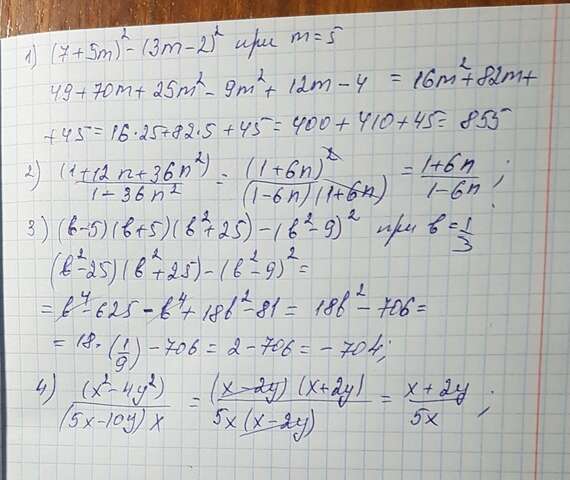 1) (7+5m)² - (3m-2)² при m=5
49+70m+25m² - 9m² + 12m - 4 = 16m²+82m+
+45 = 16·25+82·5+45 = 400+410+45 = 855
2) (1+12n+36n²)/(1-36n²) = (1+6n)²/((1-6n)(1+6n)) = (1+6n)/(1-6n);
3) (b-5)(b+5)(b²+25) - (b²-9)² при b=1/3
(b²-25)(b²+25) - (b²-9)² =
= b⁴-625-b⁴+18b²-81 = 18b²-706 =
= 18·(1/9) - 706 = 2-706 = -704;
4) (x²-4y²)/((5x-10y)x) = ((x-2y)(x+2y))/(5x(x-2y)) = (x+2y)/(5x);